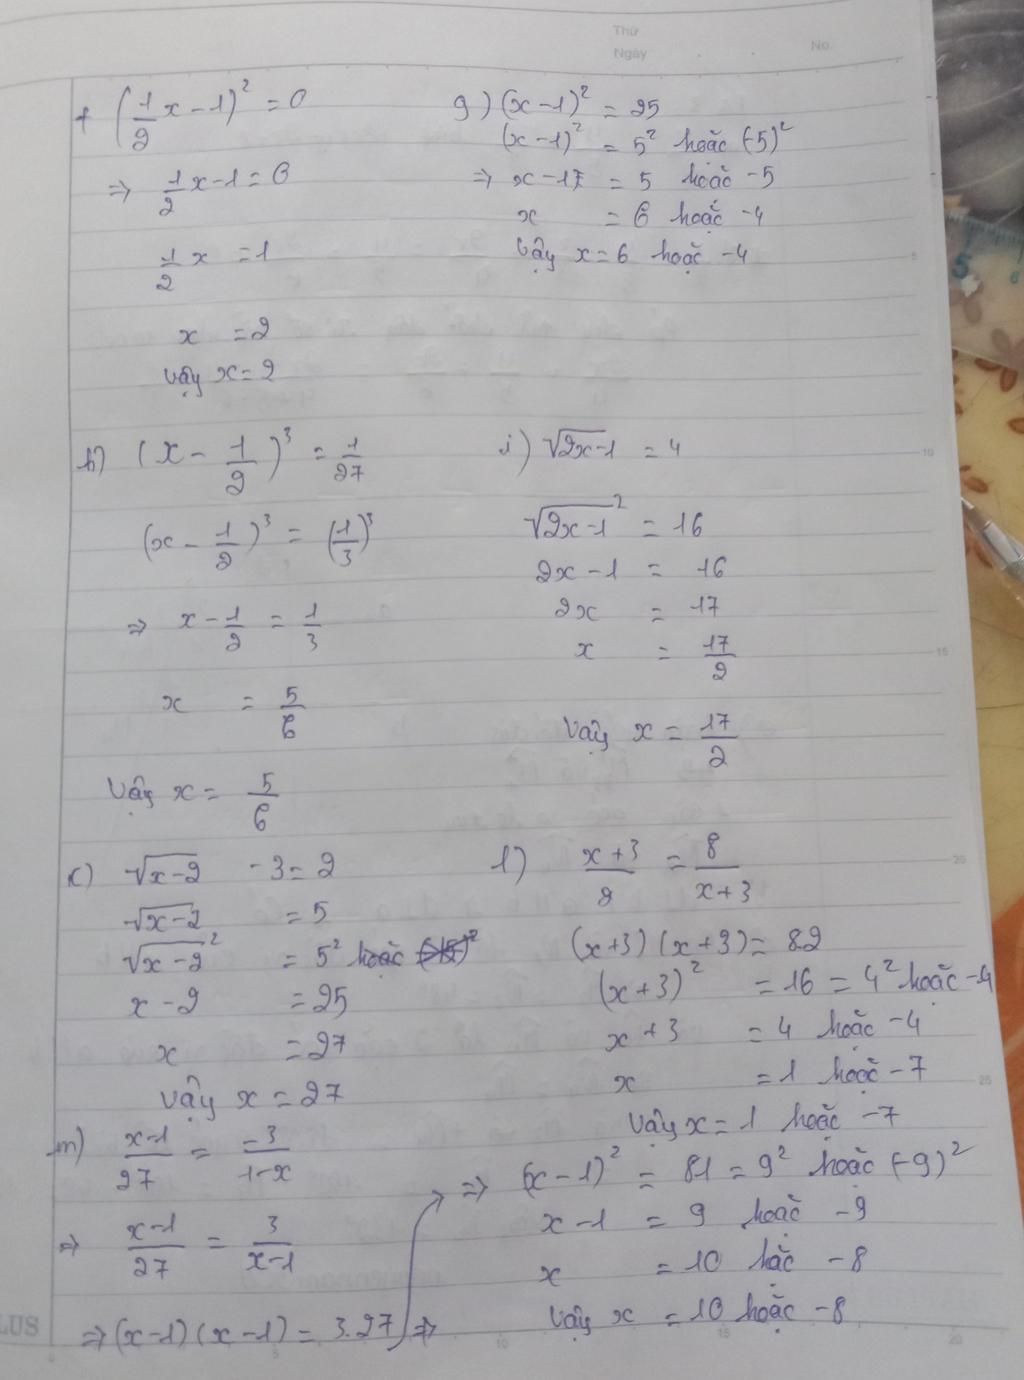 Thứ
Ngày . . No.
f (1/2 x - 1)² = 0
⇒ 1/2 x - 1 = 0
1/2 x = 1
x = 2
Vậy x = 2
g) (x-1)² = 25
(x-1)² = 5² hoặc (-5)²
⇒ x-1 = 5 hoặc -5
x = 6 hoặc -4
Vậy x = 6 hoặc -4
h) (x - 1/2)³ = 1/27
(x - 1/2)³ = (1/3)³
⇒ x - 1/2 = 1/3
x = 5/6
Vậy x = 5/6
i) √2x-1 = 4
√2x-1² = 16
2x-1 = 16
2x = 17
x = 17/2
Vậy x = 17/2
k) √x-2 - 3 = 2
√x-2 = 5
√x-2² = 5² hoặc
x-2 = 25
x = 27
Vậy x = 27
l) x+3/2 = 8/x+3
(x+3)(x+3) = 8.2
(x+3)² = 16 = 4² hoặc -4
x+3 = 4 hoặc -4
x = 1 hoặc -7
Vậy x = 1 hoặc -7
m) x-1/27 = -3/1-x
⇒ x-1/27 = 3/x-1
⇒ (x-1)(x-1) = 3.27 ⇒
⇒ (x-1)² = 81 = 9² hoặc (-9)²
x-1 = 9 hoặc -9
x = 10 hăc -8
Vậy x = 10 hoặc -8
LUS
0 5 10 15 20
5
10
15
20
25
5